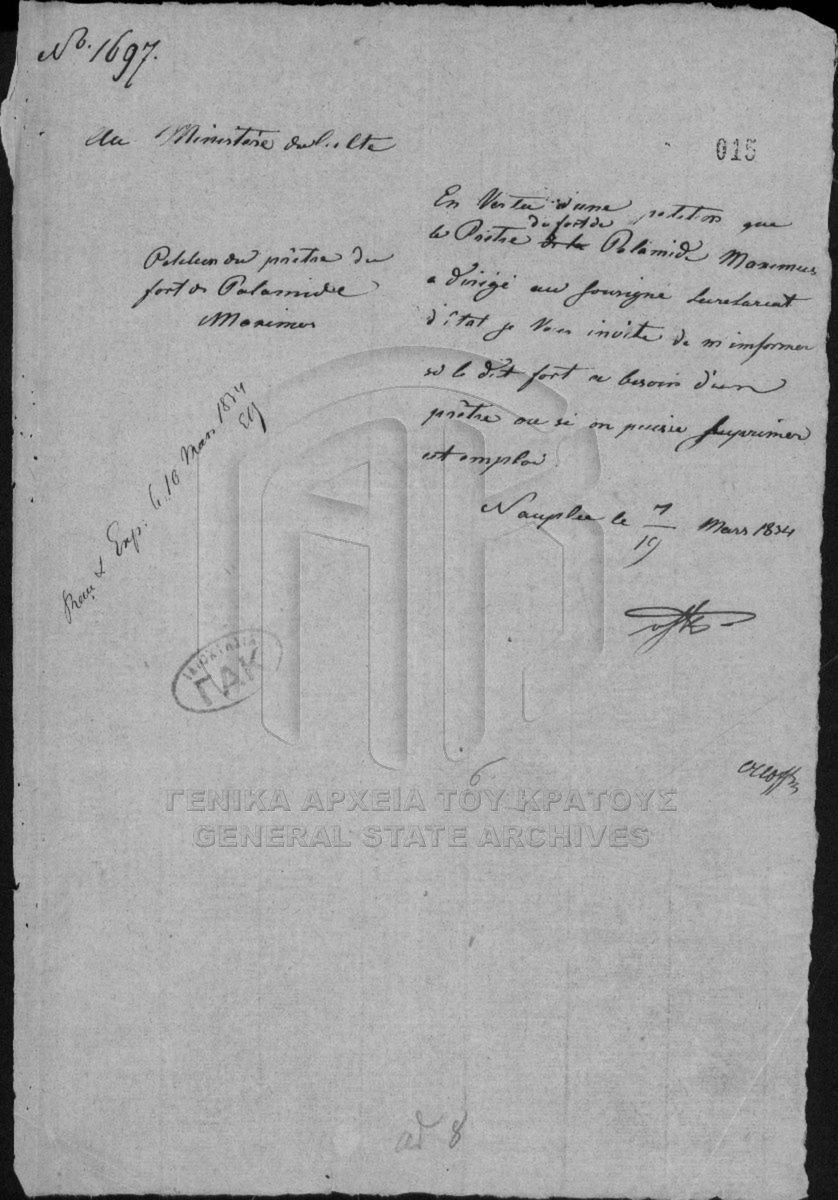 No. 1697.
Au Ministère du Culte
015
Petition du prêtre du
fort de Palamide
Maximus
En Vertu d'une petition que
du fort de
le Prêtre de la Palamide Maximus
a dirigé au sousigné Secretariat
d'état je Vous invite de m'informer
si le dit fort a besoin d'un
prêtre ou si on puisse suprimer
cet emploi.
Nauplie le 7/19 Mars 1834
Exp. le 10 Mars 1834
ΠΑΚ
6.
ΓΕΝΙΚΑ ΑΡΧΕΙΑ ΤΟΥ ΚΡΑΤΟΥΣ
GENERAL STATE ARCHIVES
ad 8